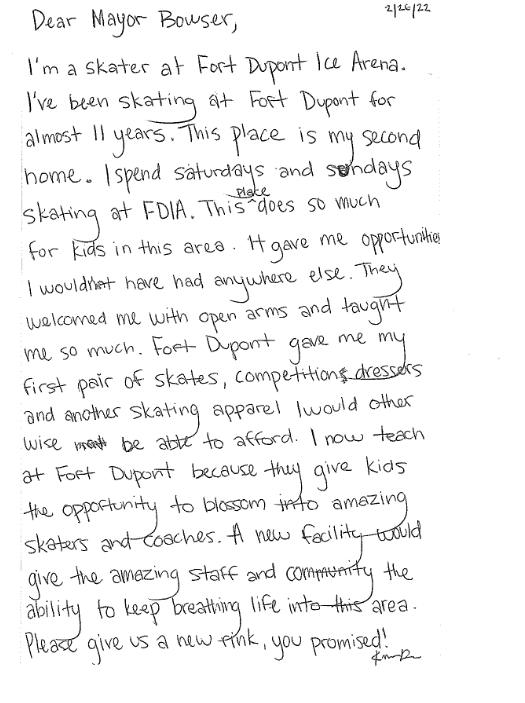 2/26/22
Dear Mayor Bowser,
I'm a skater at Fort Dupont Ice Arena.
I've been skating at Fort Dupont for
almost 11 years. This place is my second
home. I spend saturdays and sundays
skating at FDIA. This place does so much
for kids in this area. It gave me opportunities
I wouldn't have had anywhere else. They
welcomed me with open arms and taught
me so much. Fort Dupont gave me my
first pair of skates, competitions dressers
and another skating apparel I would other
wise be able to afford. I now teach
at Fort Dupont because they give kids
the opportunity to blossom into amazing
skaters and coaches. A new facility would
give the amazing staff and community the
ability to keep breathing life into this area.
Please give us a new rink, you promised!